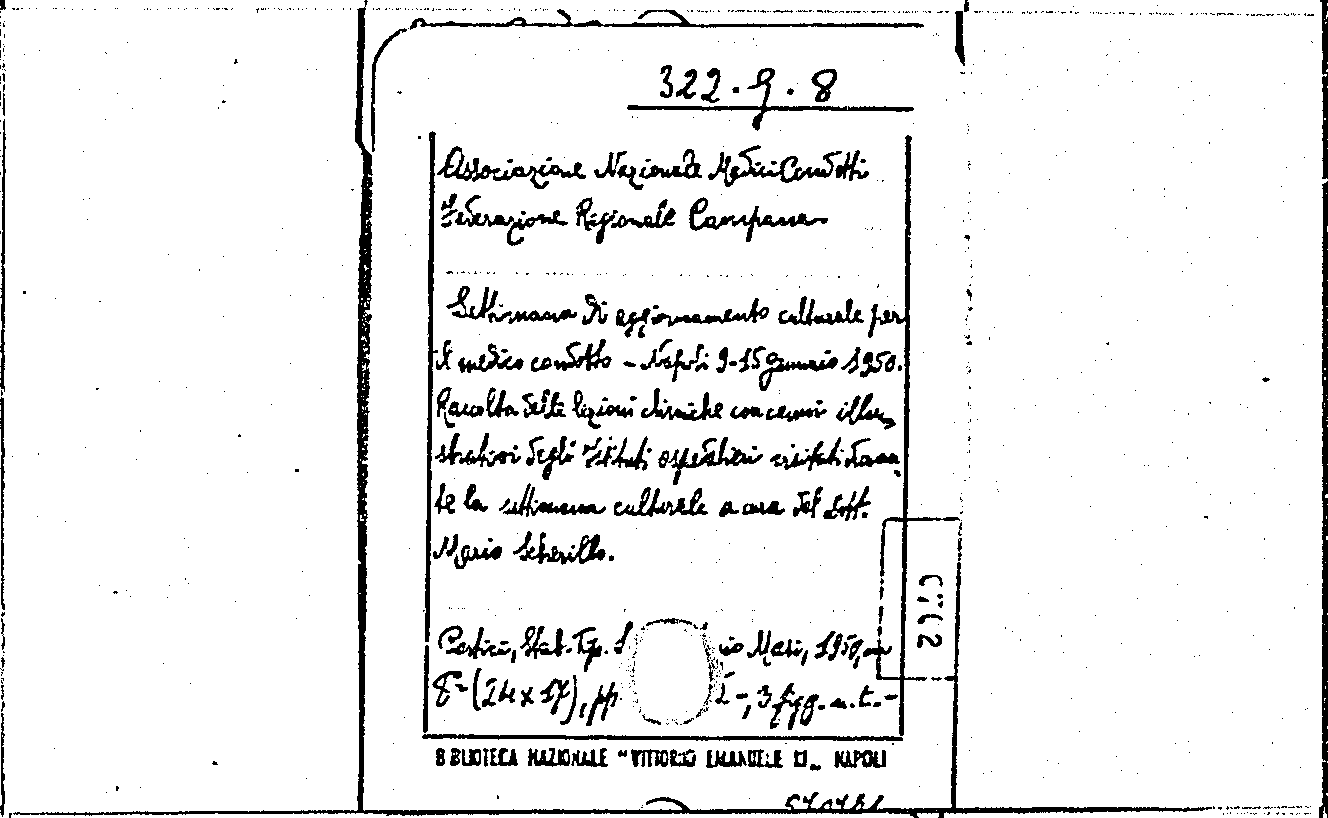 322.9.8
Associazione Nazionale Medici Condotti
Federazione Regionale Campana
Settimana di aggiornamento culturale per
il medico condotto - Napoli 9-15 gennaio 1950.
Raccolta delle lezioni cliniche con cenni illu-
strativi degli Istituti ospedalieri visitati duran-
te la settimana culturale a cura del Dott.
Mario Scherillo.
Portici, Stab. Tip. Masi, 1950, in
8°- (24 x 17), pp. -, 3 fgg. n. t. -
BIBLIOTECA NAZIONALE "VITTORIO EMANUELE III„ NAPOLI